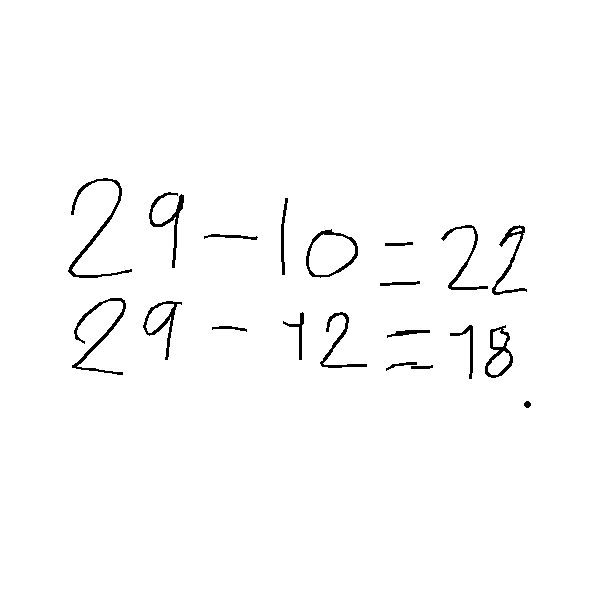 29 - 10 = 22
29 - 12 = 18.